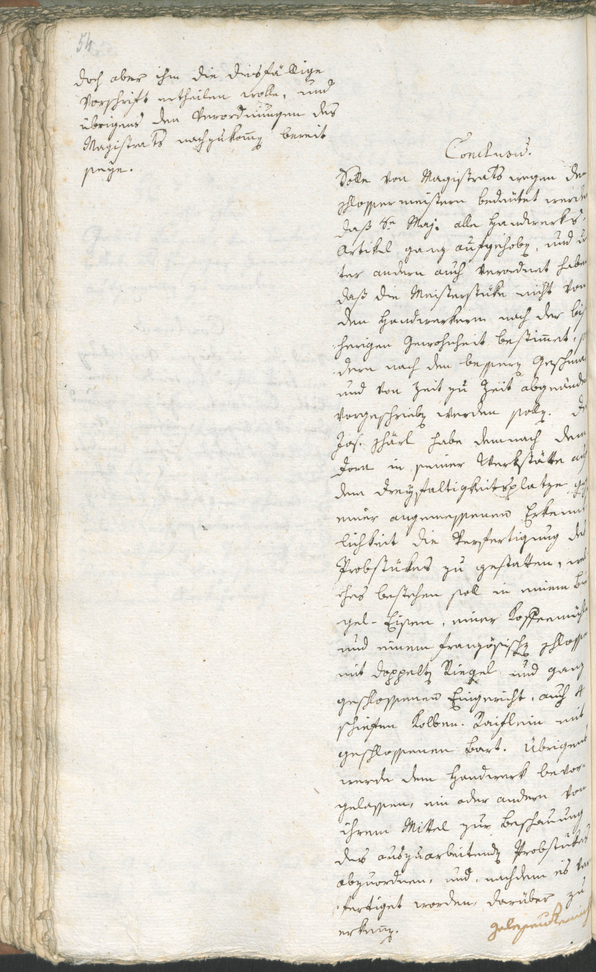 54
doch aber ihm die diesfällige
Vorschrift ertheilen wolle, und
übrigens den Verordnungen des
Magistrats nachzukom̄en bereit
seye.
Conclusum.
Solle von Magistrats wegen den
Schlossermeistern bedeutet werde
daß Se. Maj. alle Handwerks-
Artikel ganz aufgehobn, und u
ter andern auch verordnet habe
daß die Meisterstüke nicht von
den Handwerkern nach der bis
herigen Gewohnheit bestim̄et, s
dern nach dem bessern Geschma
und von Zeit zu Zeit abgeände
vorgeschriebn werden solln. De
Jos. Schärl habe demnach dem
Dorn in seiner Werkstätte auf
dem Dreyfaltigkeitsplatze ge
einer angemessenen Erkennt
lichkeit die Verfertigung des
Probstükes zu gestatten, wel
ches bestehen soll in einem Bü
gel-Eisen, einer Koffeemühl
und einem französischn Schlosse
mit doppeltn Riegel und ganz
geschlossenen Eingericht, auch 4
schiefen Kolben-Raiflein mit
geschlossenen Bart. Übrigens
werde dem Handwerk bevor-
gelassen, ein oder andern von
ihrem Mittel zur Beschauung
des auszuarbeitendn Probstükes
abzuordnen, und, nachdem es ver
fertiget worden, darüber zu
erken̄en.